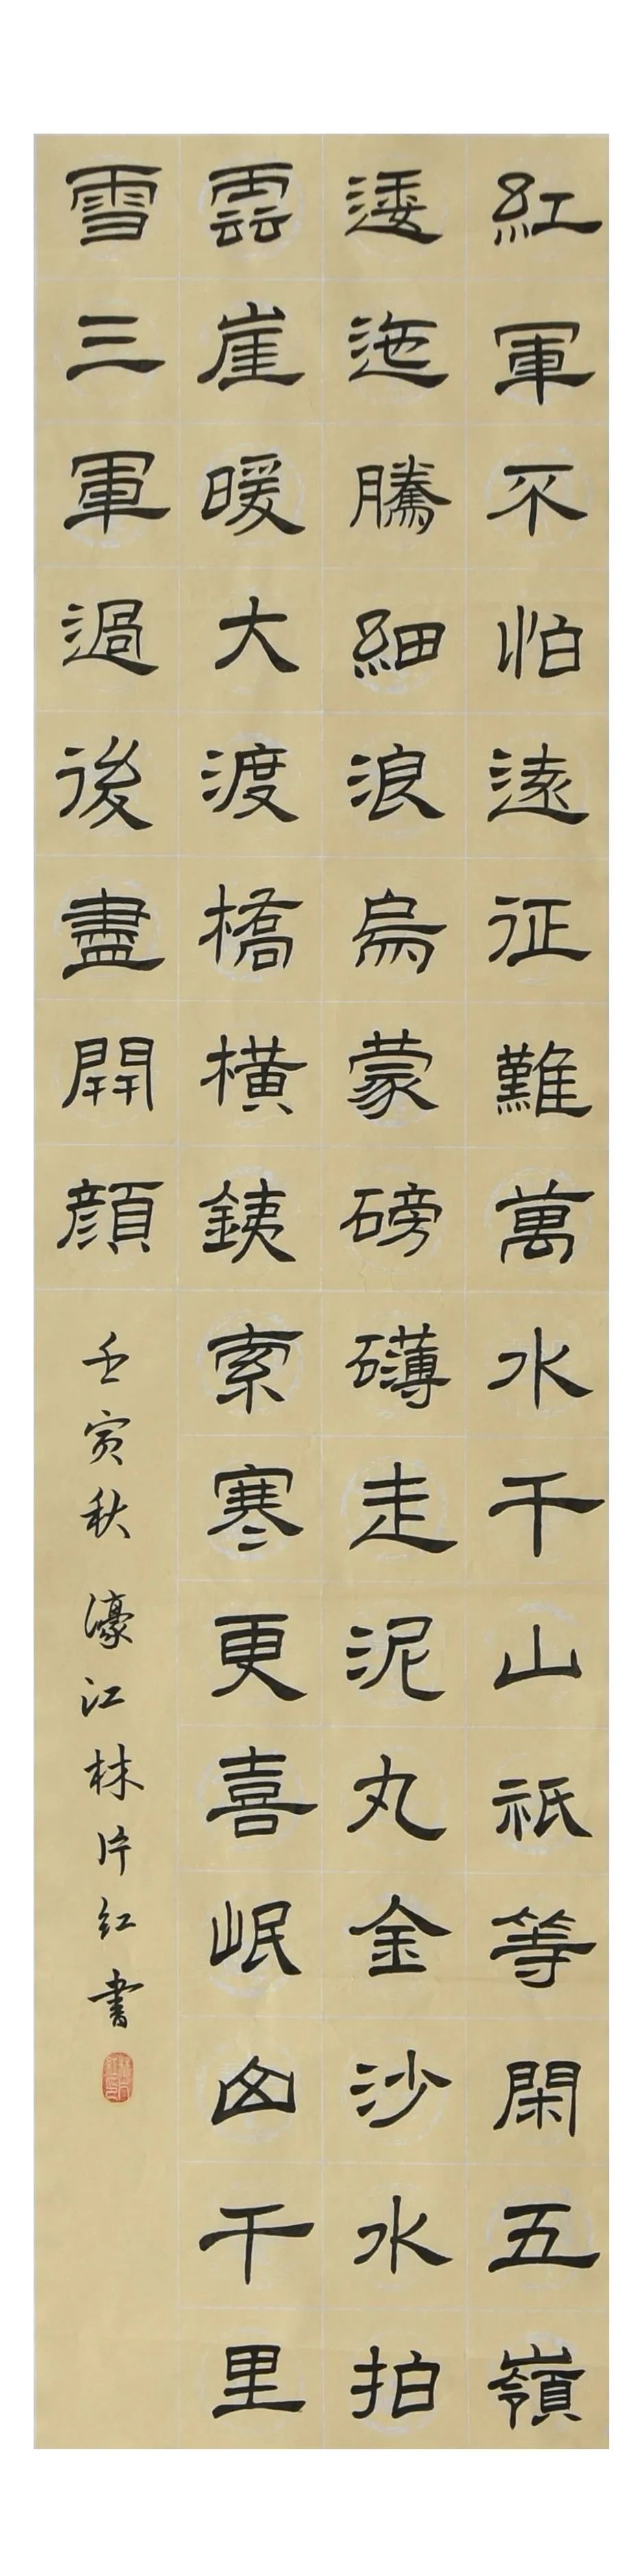 紅軍不怕遠征難萬水千山祇等閑五嶺
逶迤騰細浪烏蒙磅礴走泥丸金沙水拍
雲崖暖大渡橋橫鐵索寒更喜岷山千里
雪三軍過後盡開顏
壬寅秋 濠江林片红書